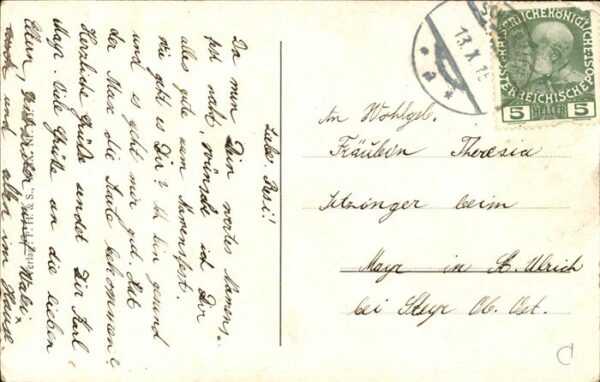 Liebe Resi!
Da nun Dein wertes Namens-
fest naht, wünsche ich Dir
alles gute zum Namensfest.
Wie geht es Dir? Ich bin gesund
und es geht mir gut. Hat
der Max die Karte bekommen?
Herzliche Grüße sendet Dir Karl
Viele Grüße an die lieben
Eltern,
und und allen im Hause.
An Wohlgeb.
Fräulein Theresia
Itzinger beim
Mayr in St. Ulrich
bei Steyr Ob. Öst.
13. X. 15
KAISERLICHE KÖNIGLICHE
ÖSTERREICHISCHE
5 HELLER 5